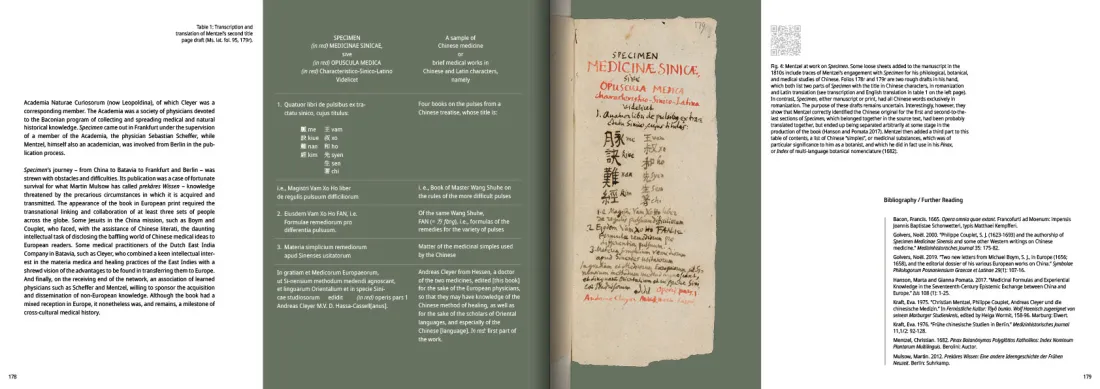 Table 1: Transcription and
translation of Mentzel's second title
page draft (Ms. lat. fol. 95, 179r).
Academia Naturae Curiosorum (now Leopoldina), of which Cleyer was a
corresponding member. The Academia was a society of physicians devoted
to the Baconian program of collecting and spreading medical and natural
historical knowledge. Specimen came out in Frankfurt under the supervision
of a member of the Academia, the physician Sebastian Scheffer, while
Mentzel, himself also an academician, was involved from Berlin in the pub-
lication process.
Specimen's journey – from China to Batavia to Frankfurt and Berlin – was
strewn with obstacles and difficulties. Its publication was a case of fortunate
survival for what Martin Mulsow has called prekäres Wissen – knowledge
threatened by the precarious circumstances in which it is acquired and
transmitted. The appearance of the book in European print required the
transnational linking and collaboration of at least three sets of people
across the globe. Some Jesuits in the China mission, such as Boym and
Couplet, who faced, with the assistance of Chinese literati, the daunting
intellectual task of disclosing the baffling world of Chinese medical ideas to
European readers. Some medical practitioners of the Dutch East India
Company in Batavia, such as Cleyer, who combined a keen intellectual inter-
est in the materia medica and healing practices of the East Indies with a
shrewd vision of the advantages to be found in transferring them to Europe.
And finally, on the receiving end of the network, an association of learned
physicians such as Scheffer and Mentzel, willing to sponsor the acquisition
and dissemination of non-European knowledge. Although the book had a
mixed reception in Europe, it nonetheless was, and remains, a milestone of
cross-cultural medical history.
178
SPECIMEN
(in red) MEDICINAE SINICAE,
sive
(in red) OPUSCULA MEDICA
(in red) Characteristico-Sinico-Latino
Videlicet
A sample of
Chinese medicine
or
brief medical works in
Chinese and Latin characters,
namely
1. Quatuor libri de pulsibus ex tra-
ctatu sinico, cuius titulus:
Four books on the pulses from a
Chinese treatise, whose title is:
脈 me 王 vam
訣 kiue 叔 xo
難 nan 和 ho
經 kim 先 syen
生 sen
著 chi
i.e., Magistri Vam Xo Ho liber
de regulis pulsuum difficiliorum
i. e., Book of Master Wang Shuhe on
the rules of the more difficult pulses
2. Eiusdem Vam Xo Ho FAN, i.e.
Formulae remediorum pro
differentia pulsuum.
Of the same Wang Shuhe,
FAN (= 方 fāng), i.e., formulas of the
remedies for the variety of pulses
3. Materia simplicium remediorum
apud Sinenses usitatorum
Matter of the medicinal simples used
by the Chinese
In gratiam et Medicorum Europaeorum,
ut Si-nensium methodum medendi agnoscant,
et linguarum Orientalium et in specie Sini-
cae studiosorum edidit (in red) operis pars 1
Andreas Cleyer M.V. D. Hassa-Cassell[anus].
Andreas Cleyer from Hessen, a doctor
of the two medicines, edited [this book]
for the sake of the European physicians,
so that they may have knowledge of the
Chinese method of healing, as well as
for the sake of the scholars of Oriental
languages, and especially of the
Chinese [language]. In red: first part of
the work.
179
SPECIMEN
MEDICINÆ SINICÆ,
sive
OPUSCULA MEDICA
characteristico-Sinico-Latina
Videlicet
1. Quatuor libri de pulsib9 ex tra
ctatu Sinico, cujus titulus:
脉 me 王 vam
訣 kiue 叔 xo
難 nan 和 ho
經 kim 先 syen
生 sen
著 chi
i.e. Magistri Vam Xo Ho liber
de regulis pulsuum difficiliorum
2. Ejusdem Vam Xo Ho FAN i.e.
Formulæ remediorum pro
differentia pulsuum
3. Materia simplicium remediorum
apud Sinenses usitatorum
Fig. 4: Mentzel at work on Specimen. Some loose sheets added to the manuscript in the
1810s include traces of Mentzel's engagement with Specimen for his philological, botanical,
and medical studies of Chinese. Folios 178r and 179r are two rough drafts in his hand,
which both list two parts of Specimen with the title in Chinese characters, in romanization
and Latin translation (see transcription and English translation in table 1 on the left pages).
In contrast, Specimen, either manuscript or print, had all Chinese words exclusively in
romanization. The purpose of these drafts remains uncertain. Interestingly, however, they
show that Mentzel correctly identified the Chinese original for the first and second-to-the-
last sections of Specimen, which belonged together in the source text, had been probably
translated together, but ended up being separated arbitrarily at some stage in the
production of the book (Hanson and Pomata 2017). Mentzel then added a third part to this
table of contents, a list of Chinese "simples", or medicinal substances, which was of
particular significance to him as a botanist, and which he did in fact use in his Pinax,
or Index of multi-language botanical nomenclature (1682).
Bibliography / Further Reading
Bacon, Francis. 1665. Opera omnia quae extant. Francofurti ad Moenum: Impensis
Joannis Baptistae Schonwetteri, typis Matthaei Kempfferi.
Golvers, Noël. 2000. "Philippe Couplet, S. J. (1623-1693) and the authorship of
Specimen Medicinae Sinensis and some other Western writings on Chinese
medicine." Medizinhistorisches Journal 35: 175-82.
Golvers, Noël. 2019. "Two new letters from Michael Boym, S. J., in Europe (1656;
1658), and the editorial dossier of his various European works on China." Symbolae
Philologorum Posnaniensium Graecae et Latinae 29(1): 107-16.
Hanson, Marta and Gianna Pomata. 2017. "Medicinal Formulas and Experiential
Knowledge in the Seventeenth-Century Epistemic Exchange between China and
Europe." Isis 108 (1): 1-25.
Kraft, Eva. 1975. "Christian Mentzel, Philippe Couplet, Andreas Cleyer und die
chinesische Medizin." In Fernöstliche Kultur: Wolf Haenisch zugeeignet von
seinem Marburger Studienkreis, edited by Helga Wormit, 158-96. Marburg: Elwert.
Kraft, Eva. 1976. "Frühe chinesische Studien in Berlin." Medizinhistorisches Journal
11,1/2: 92-128.
Mentzel, Christian. 1682. Pinax Botanōnymos Polyglōttos Katholikos: Index Nominum
Plantarum Multilinguis. Berolini: Auctor.
Mulsow, Martin. 2012. Prekäres Wissen: Eine andere Ideengeschichte der Frühen
Neuzeit. Berlin: Suhrkamp.
179